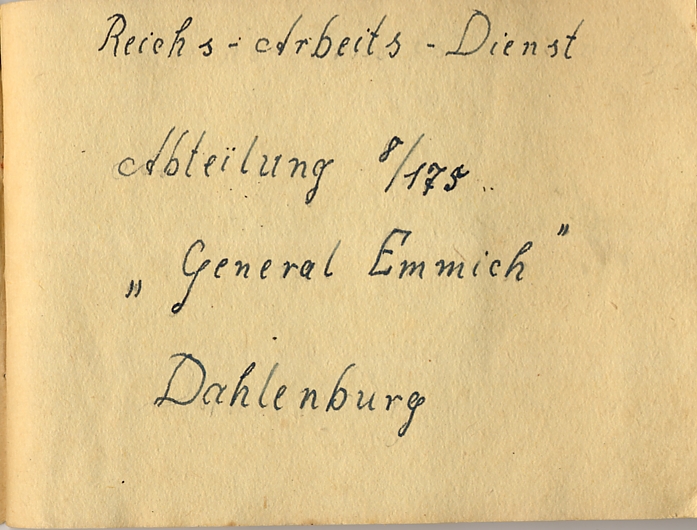 Reichs-Arbeits-Dienst
Abteilung 8/175
„General Emmich”
Dahlenburg